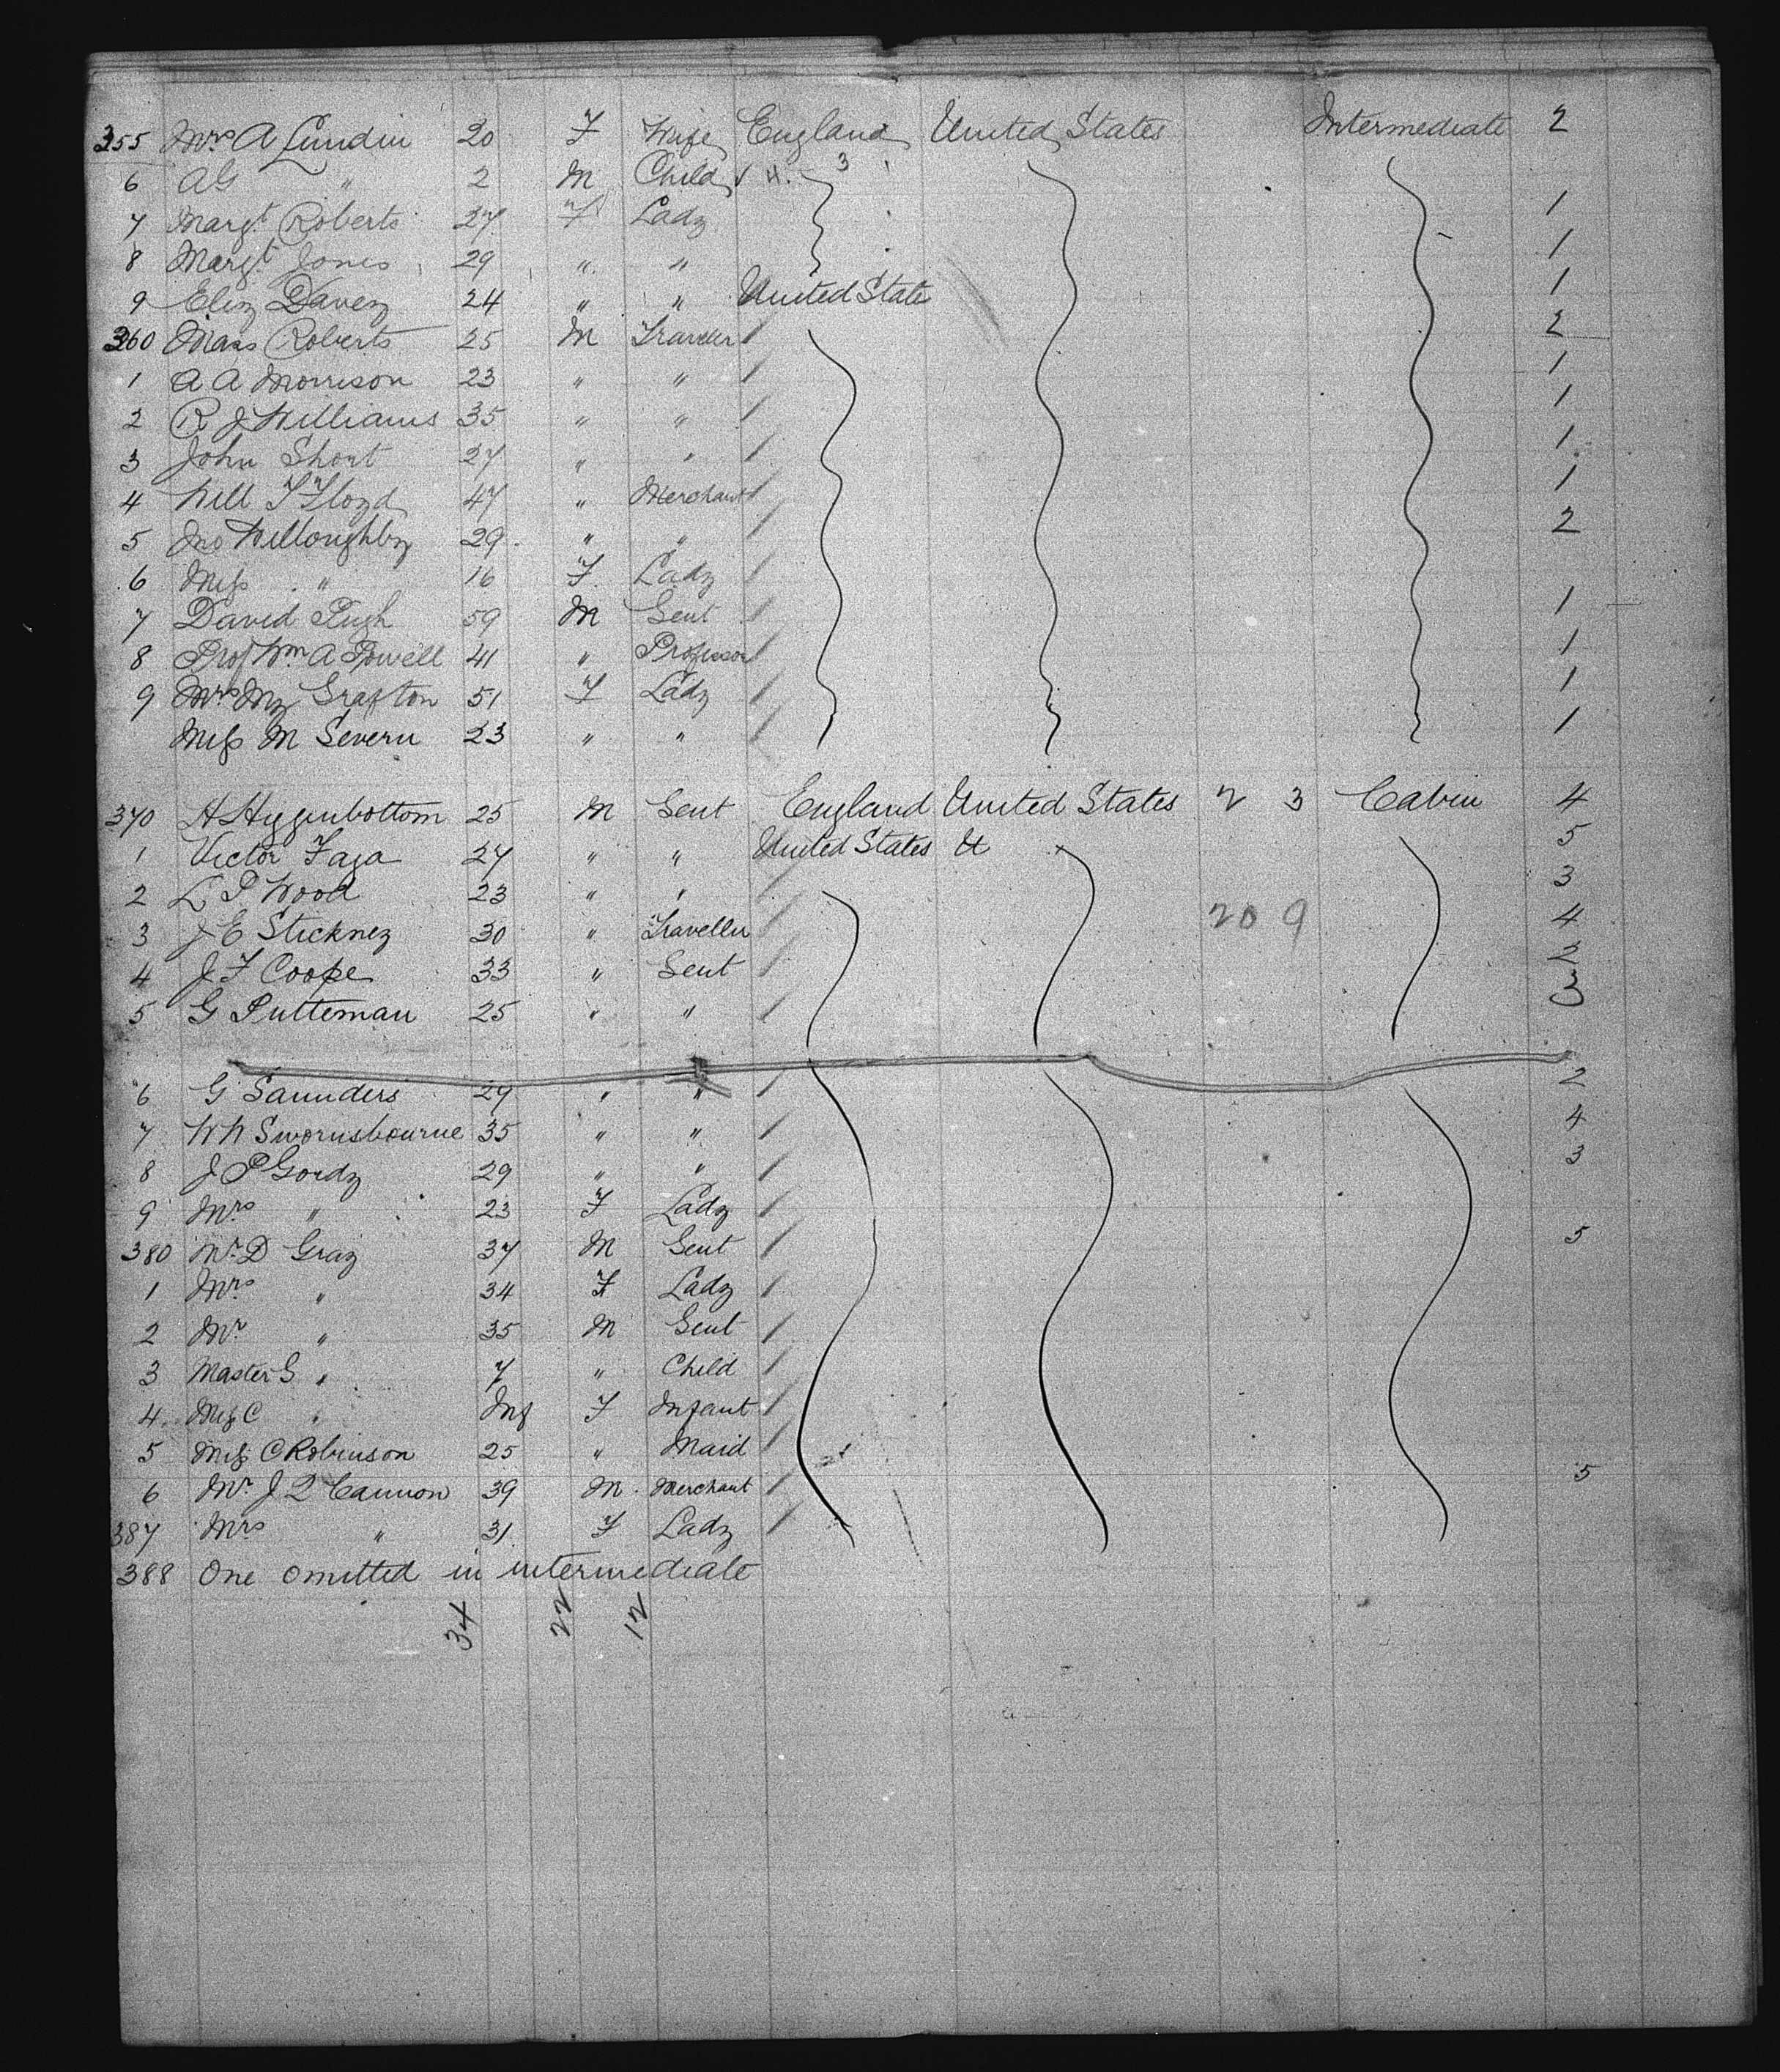 355 Mrs A Lundin 20 F Wife England United States Intermediate 2
6 AG " 2 M Child 3
7 Margt Roberts 27 F Lady 1
8 Margt Jones 29 " " 1
9 Eliz Davey 24 " " United State 1
360 Mass Roberts 25 M Traveller 2
1 A A Morrison 23 " " 1
2 R J Williams 35 " " 1
3 John Short 27 " " 1
4 Will T Floyd 47 " Merchant 1
5 Jno Willoughby 29 " " 2
6 Miss " 16 F Lady
7 David Pugh 59 M Gent 1
8 Prof Wm A Powell 41 " Professor 1
9 Mrs My Grafton 51 F Lady 1
Miss M Severn 23 " " 1
370 H Higginbottom 25 M Gent England United States 2 3 Cabin 4
1 Victor Faja 27 " " United States U 5
2 L P Wood 23 " " 3
3 J E Stickney 30 " Traveller 20 9 4
4 J F Cooke 33 " Gent
5 G Putteman 25 " "
6 G Saunders 29 " " 2
7 W W Swornsbourne 35 " " 4
8 J P Gordy 29 " " 3
9 Mrs " 23 F Lady
380 Mr D Gray 37 M Gent 5
1 Mrs " 34 F Lady
2 Mr " 35 M Gent
3 Master G " 7 " Child
4 Miss C " Inf F Infant
5 Miss C Robinson 25 " Maid
6 Mr J Q Cannon 39 M Merchant 5
387 Mrs " 31 F Lady
388 One omitted in intermediate
34 22 12